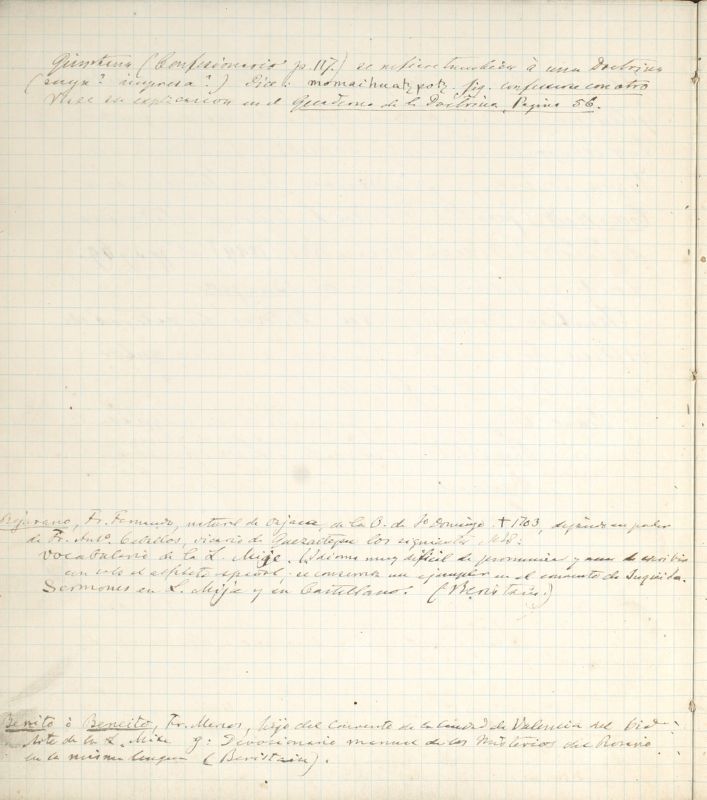 Quintana (Confesionario p. 117.) se refiere tambien à una Doctrina
(suya? impresa?) Dice: momaihuatzpotz. sig. confesion con otro
Vease su explicacion en el Quaderno de la Doctrina, Pagina 56.
Bejarano, Fr. Fernando, natural de Oajaca, de la O. de Sto Domingo. † 1703, dejando en poder
de Fr. Anto. Cabellos, vicario de Quezaltepec los siguientes MSS:
Vocabulario de la L. Mije. Idioma muy dificil de pronunciar y aun de escribir
con solo el alfabeto español, se conserva un ejemplar en el convento de Juquila.
Sermones en L. Mije y en Castellano. (Beristain.)
Benito ò Beneito, Fr. Menos, hijo del Convento de la Ciudad de Valencia del
Arte de la L. Mixe y: Devocionario manual de los Misterios del Rosario
en la misma lengua (Beristain).